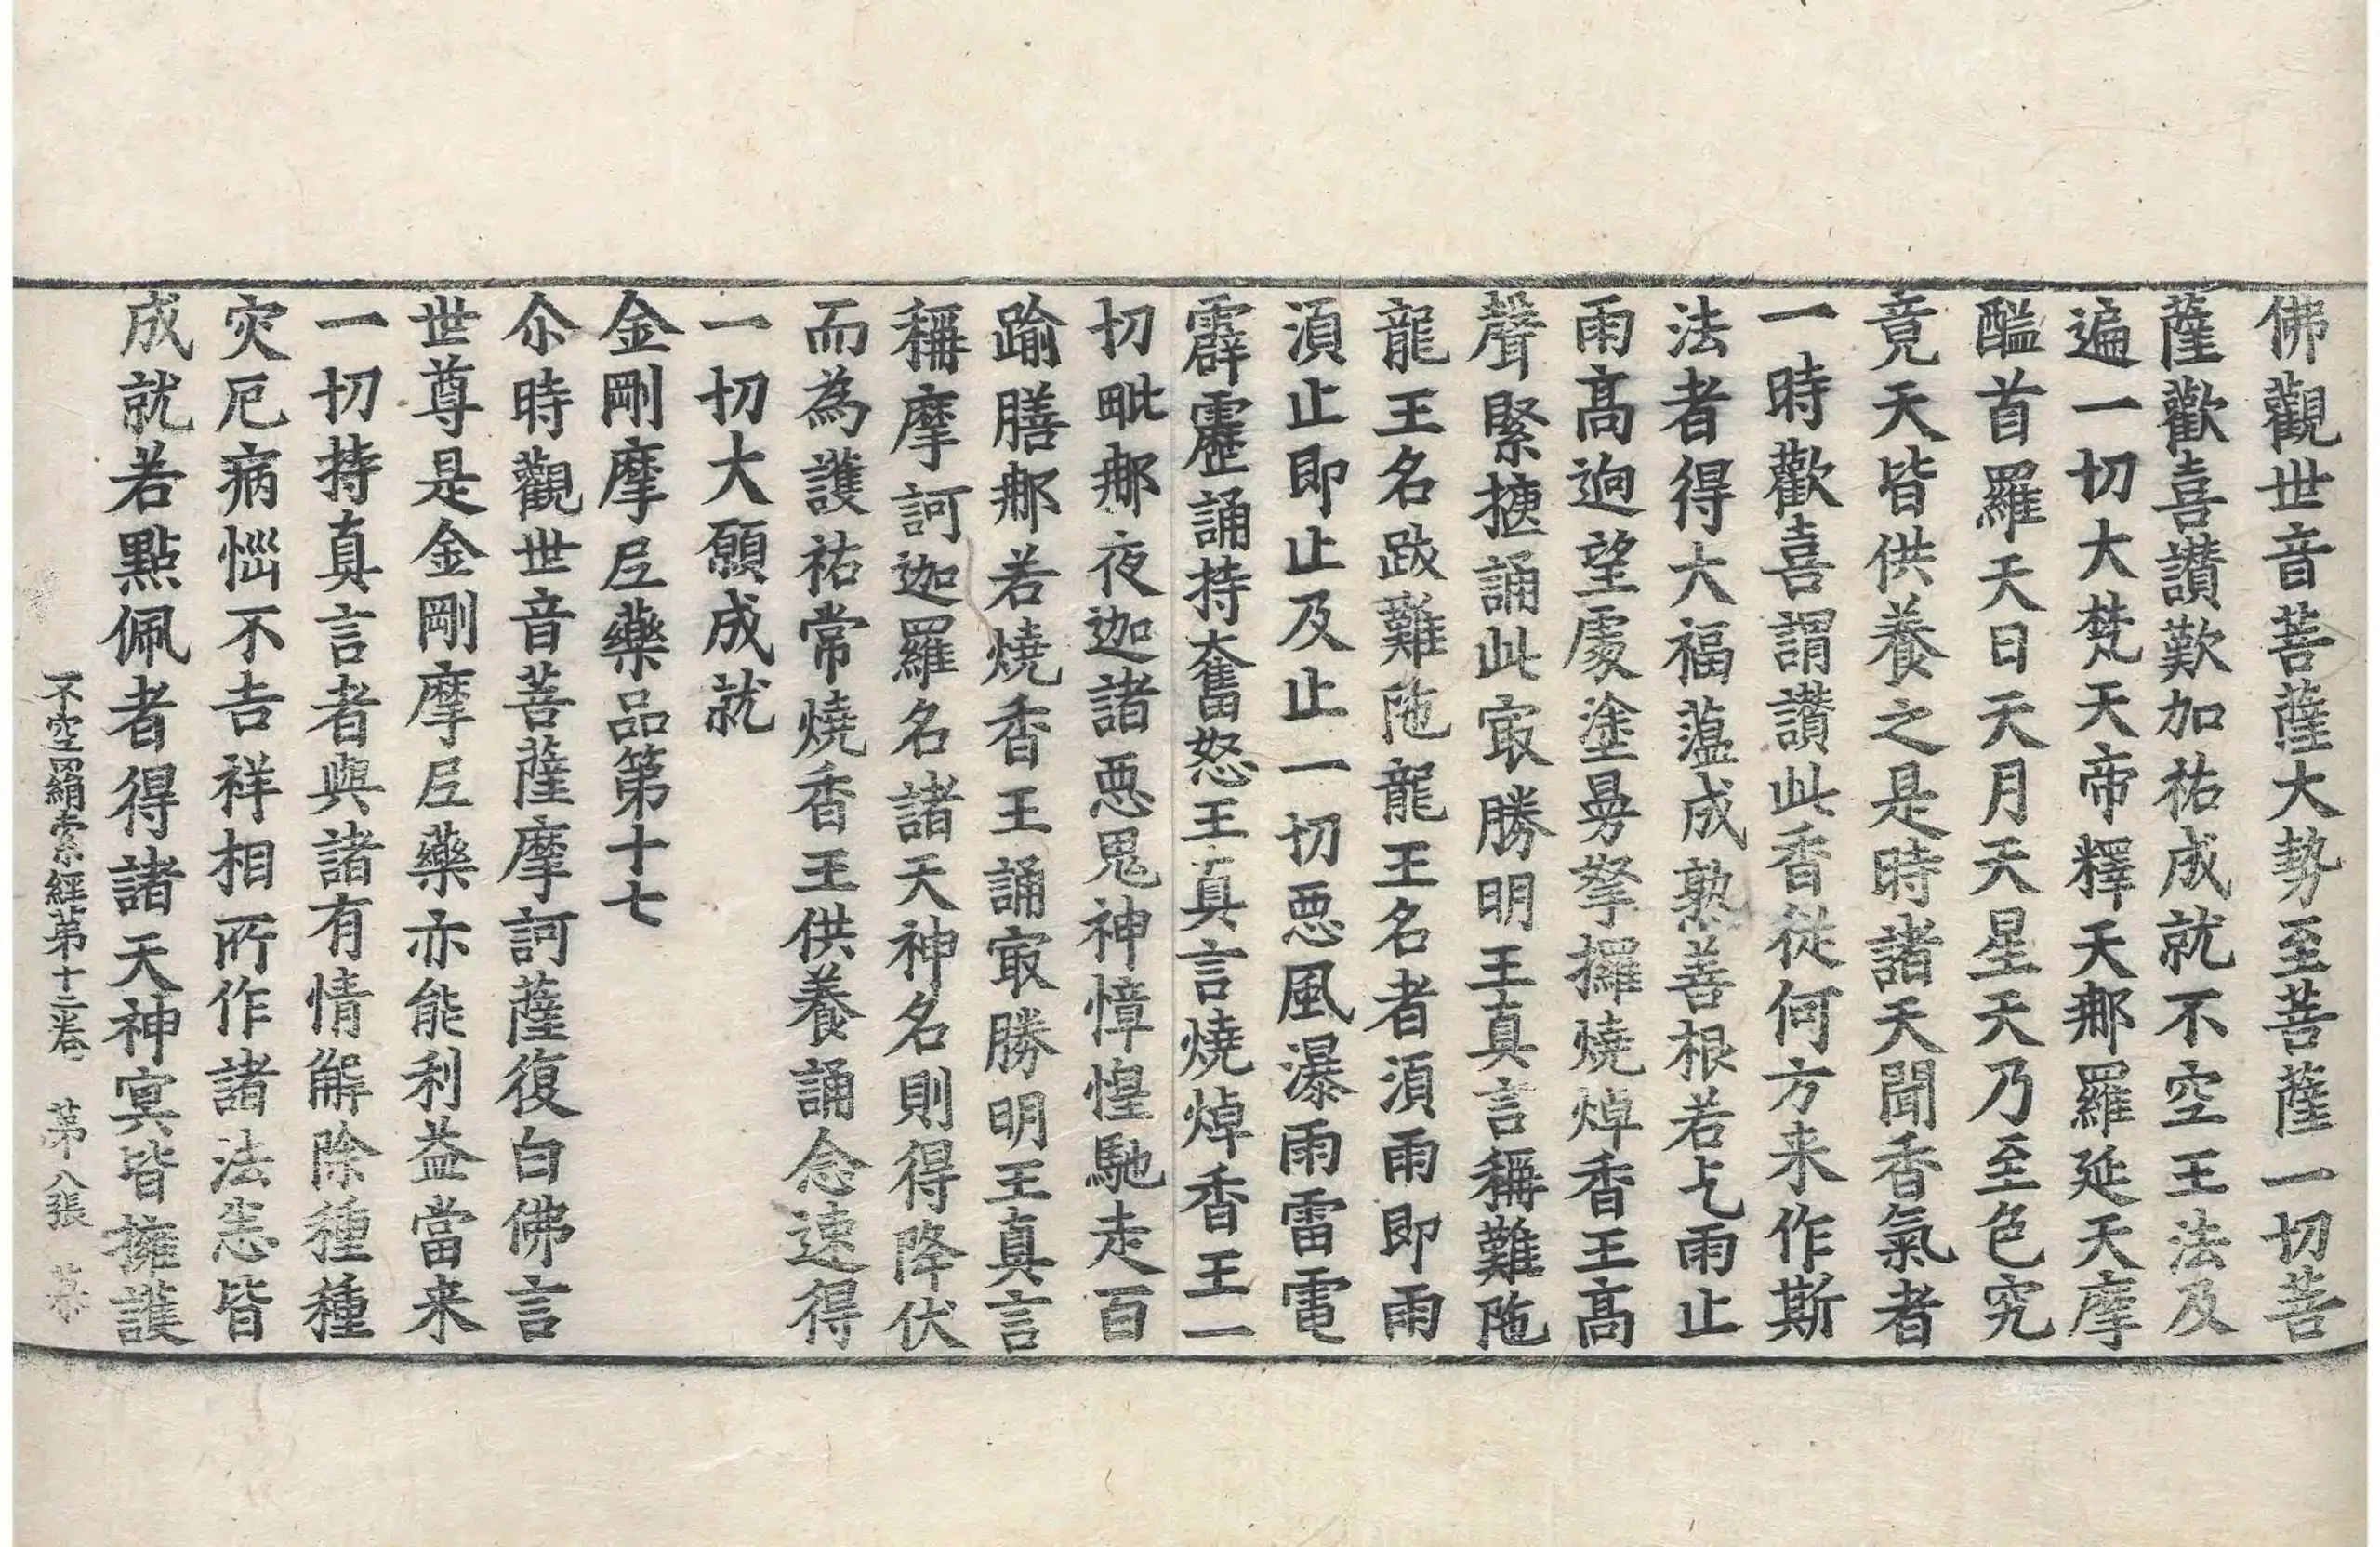 佛觀世音菩薩大勢至菩薩一切菩
薩歡喜讃歎加祐成就不空王法及
遍一切大梵天帝釋天那羅延天摩
醯首羅天日天月天星天乃至色究
竟天皆供養之是時諸天聞香氣者
一時歡喜謂讃此香從何方来作斯
法者得大福蕰成熟善根若乞雨止
雨髙逈望處塗曼拏攞燒焯香王髙
聲緊捷誦此㝡勝明王真言稱難陁
龍王名跋難陁龍王名者湏雨即雨
湏止即止及止一切惡風瀑雨雷電
霹靂誦持奮怒王真言燒焯香王一
切毗那夜迦諸惡鬼神慞惶馳走百
踰膳那若燒香王誦㝡勝明王真言
稱摩訶迦羅名諸天神名則得降伏
而為護祐常燒香王供養誦念速得
一切大願成就
金剛摩尼藥品第十七
尒時觀世音菩薩摩訶薩復白佛言
世尊是金剛摩尼藥亦能利益當来
一切持真言者與諸有情解除種種
灾厄病惱不吉祥相所作諸法恙皆
成就若點佩者得諸天神寞皆擁護
不空羂索經苐十二卷　苐八張　墓